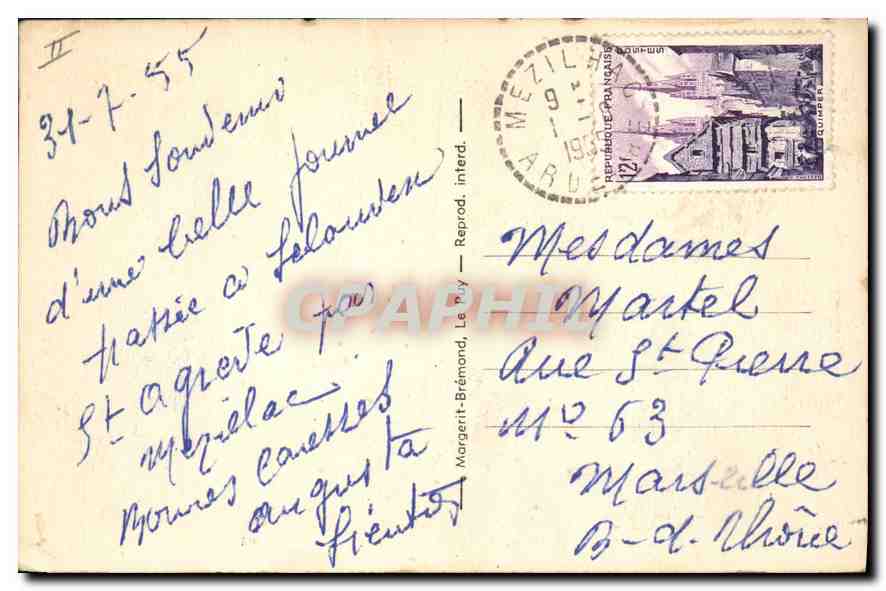 II
31-7-55
Bons Souvenir
d'une belle journee
passée a
St Agrève par
Mezillac.
Bonnes Caresses
augusta
Margerit-Brémond, Le Puy — Reprod. interd.
MEZILHAC
9
1
ARD
REPUBLIQUE FRANÇAISE
POSTES
12f
QUIMPER
CPAPHIL
Mesdames
Martel
Rue St Pierre
No 63
Marseille
B-d-Rhône